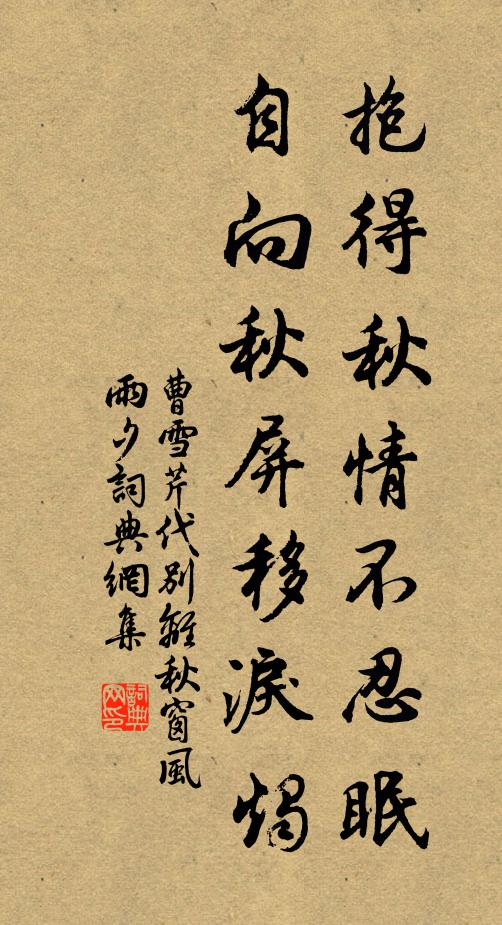 抱得秋情不忍眠
自向秋屏移淚燭
曹雪芹代別離秋窗風
雨夕詞典網集
詞典
网印